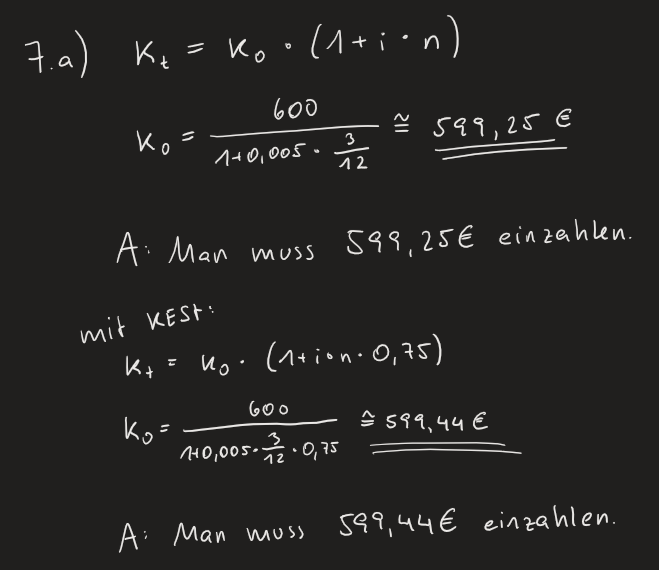 7.a) K_t = K_0 · (1+i·n)
K_0 = 600 / (1+0,005 · 3/12) ≅ 599,25 €
A: Man muss 599,25€ einzahlen.
mit KESt:
K_t = K_0 · (1+i·n·0,75)
K_0 = 600 / (1+0,005·3/12·0,75) ≅ 599,44 €
A: Man muss 599,44€ einzahlen.